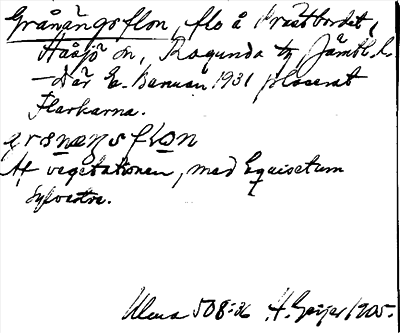 Grånängsflon, flo å Prästbordet,
Håsjö sn, Ragunda tg, Jämtl. l.
– Där E. Baruan 1931 placerat
Flarkarna.
grsnæŋsflon
Af vegetationen, med Equisetum
sylvatic.
Ulma 508:36 H. Geijer 1905.